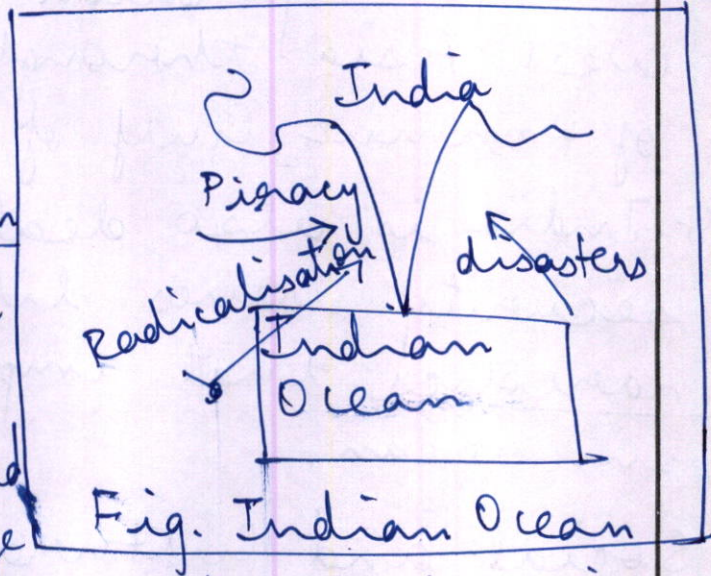 India
Piracy
Radicalisation
disasters
Indian
Ocean
Fig. Indian Ocean